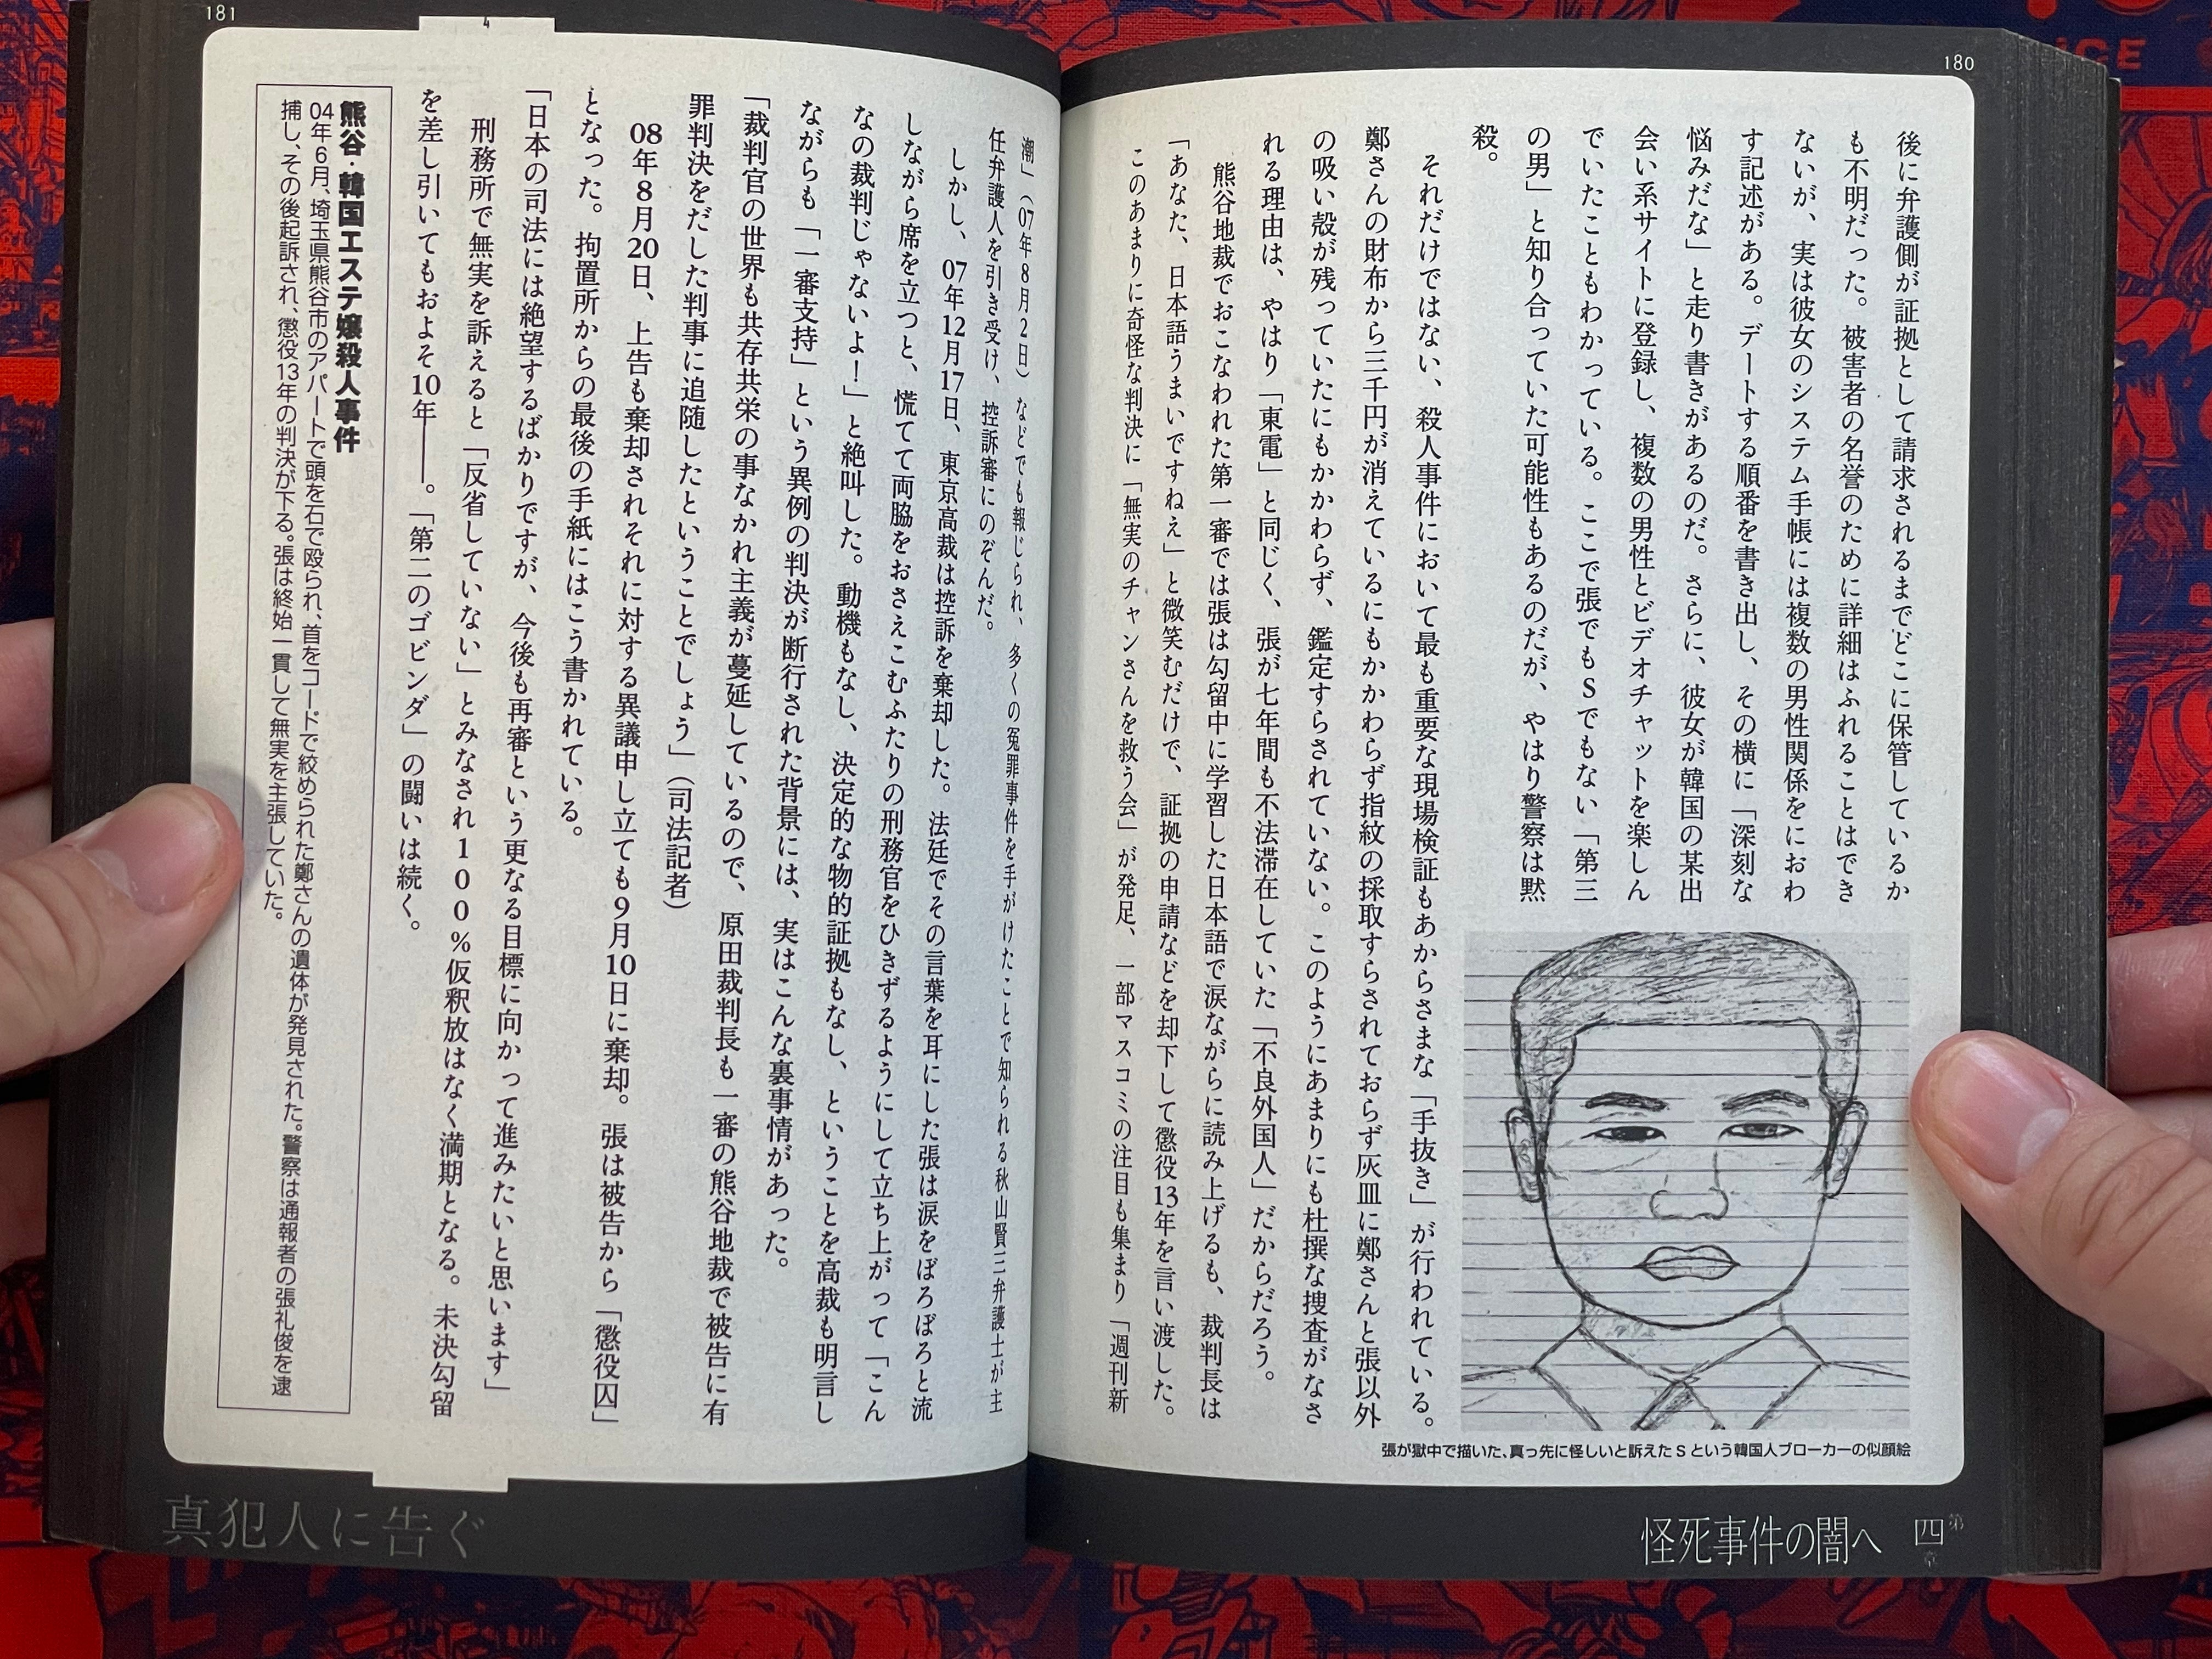 180
後に弁護側が証拠として請求されるまでどこに保管しているか
も不明だった。被害者の名誉のために詳細はふれることはでき
ないが、実は彼女のシステム手帳には複数の男性関係をにおわ
す記述がある。デートする順番を書き出し、その横に「深刻な
悩みだな」と走り書きがあるのだ。さらに、彼女が韓国の某出
会い系サイトに登録し、複数の男性とビデオチャットを楽しん
でいたこともわかっている。ここで張でもSでもない「第三
の男」と知り合っていた可能性もあるのだが、やはり警察は黙
殺。
それだけではない、殺人事件において最も重要な現場検証もあからさまな「手抜き」が行われている。
鄭さんの財布から三千円が消えているにもかかわらず指紋の採取すらされておらず灰皿に鄭さんと張以外
の吸い殻が残っていたにもかかわらず、鑑定すらされていない。このようにあまりにも杜撰な捜査がなさ
れる理由は、やはり「東電」と同じく、張が七年間も不法滞在していた「不良外国人」だからだろう。
熊谷地裁でおこなわれた第一審では張は勾留中に学習した日本語で涙ながらに読み上げるも、裁判長は
「あなた、日本語うまいですねえ」と微笑むだけで、証拠の申請などを却下して懲役13年を言い渡した。
このあまりに奇怪な判決に「無実のチャンさんを救う会」が発足、一部マスコミの注目も集まり「週刊新
張が獄中で描いた、真っ先に怪しいと訴えたSという韓国人ブローカーの似顔絵
第四章
怪死事件の闇へ
181
4
潮」(07年8月2日)などでも報じられ、多くの冤罪事件を手がけたことで知られる秋山賢三弁護士が主
任弁護人を引き受け、控訴審にのぞんだ。
しかし、07年12月17日、東京高裁は控訴を棄却した。法廷でその言葉を耳にした張は涙をぼろぼろと流
しながら席を立つと、慌てて両脇をおさえこむふたりの刑務官をひきずるようにして立ち上がって「こん
なの裁判じゃないよ!」と絶叫した。動機もなし、決定的な物的証拠もなし、ということを高裁も明言し
ながらも「一審支持」という異例の判決が断行された背景には、実はこんな裏事情があった。
「裁判官の世界も共存共栄の事なかれ主義が蔓延しているので、原田裁判長も一審の熊谷地裁で被告に有
罪判決をだした判事に追随したということでしょう」(司法記者)
08年8月20日、上告も棄却されそれに対する異議申し立ても9月10日に棄却。張は被告から「懲役囚」
となった。拘置所からの最後の手紙にはこう書かれている。
「日本の司法には絶望するばかりですが、今後も再審という更なる目標に向かって進みたいと思います」
刑務所で無実を訴えると「反省していない」とみなされ100%仮釈放はなく満期となる。未決勾留
を差し引いてもおよそ10年――。「第二のゴビンダ」の闘いは続く。
熊谷・韓国エステ嬢殺人事件
04年6月、埼玉県熊谷市のアパートで頭を石で殴られ、首をコードで絞められた鄭さんの遺体が発見された。警察は通報者の張礼俊を逮
捕し、その後起訴され、懲役13年の判決が下る。張は終始一貫して無実を主張していた。
真犯人に告ぐ